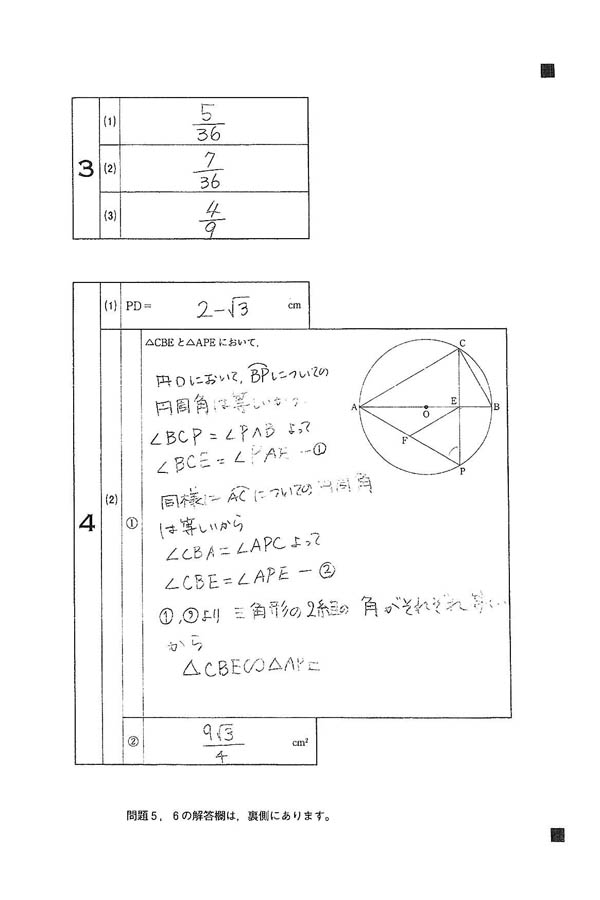 3
(1) 5/36
(2) 7/36
(3) 4/9
4
(1) PD= 2-√3 cm
(2)
①
△CBEと△APEにおいて,
円Oにおいて,BPについての
円周角は等しいから
∠BCP=∠PAB よって
∠BCE=∠PAE ―①
同様に ACについての円周角
は等しいから
∠CBA=∠APC よって
∠CBE=∠APE ―②
①,②より 三角形の2組の 角がそれぞれ 等しい
から
△CBE∽△APE
A
O
E
B
C
F
P
② 9√3/4 cm²
問題5,6の解答欄は,裏側にあります。